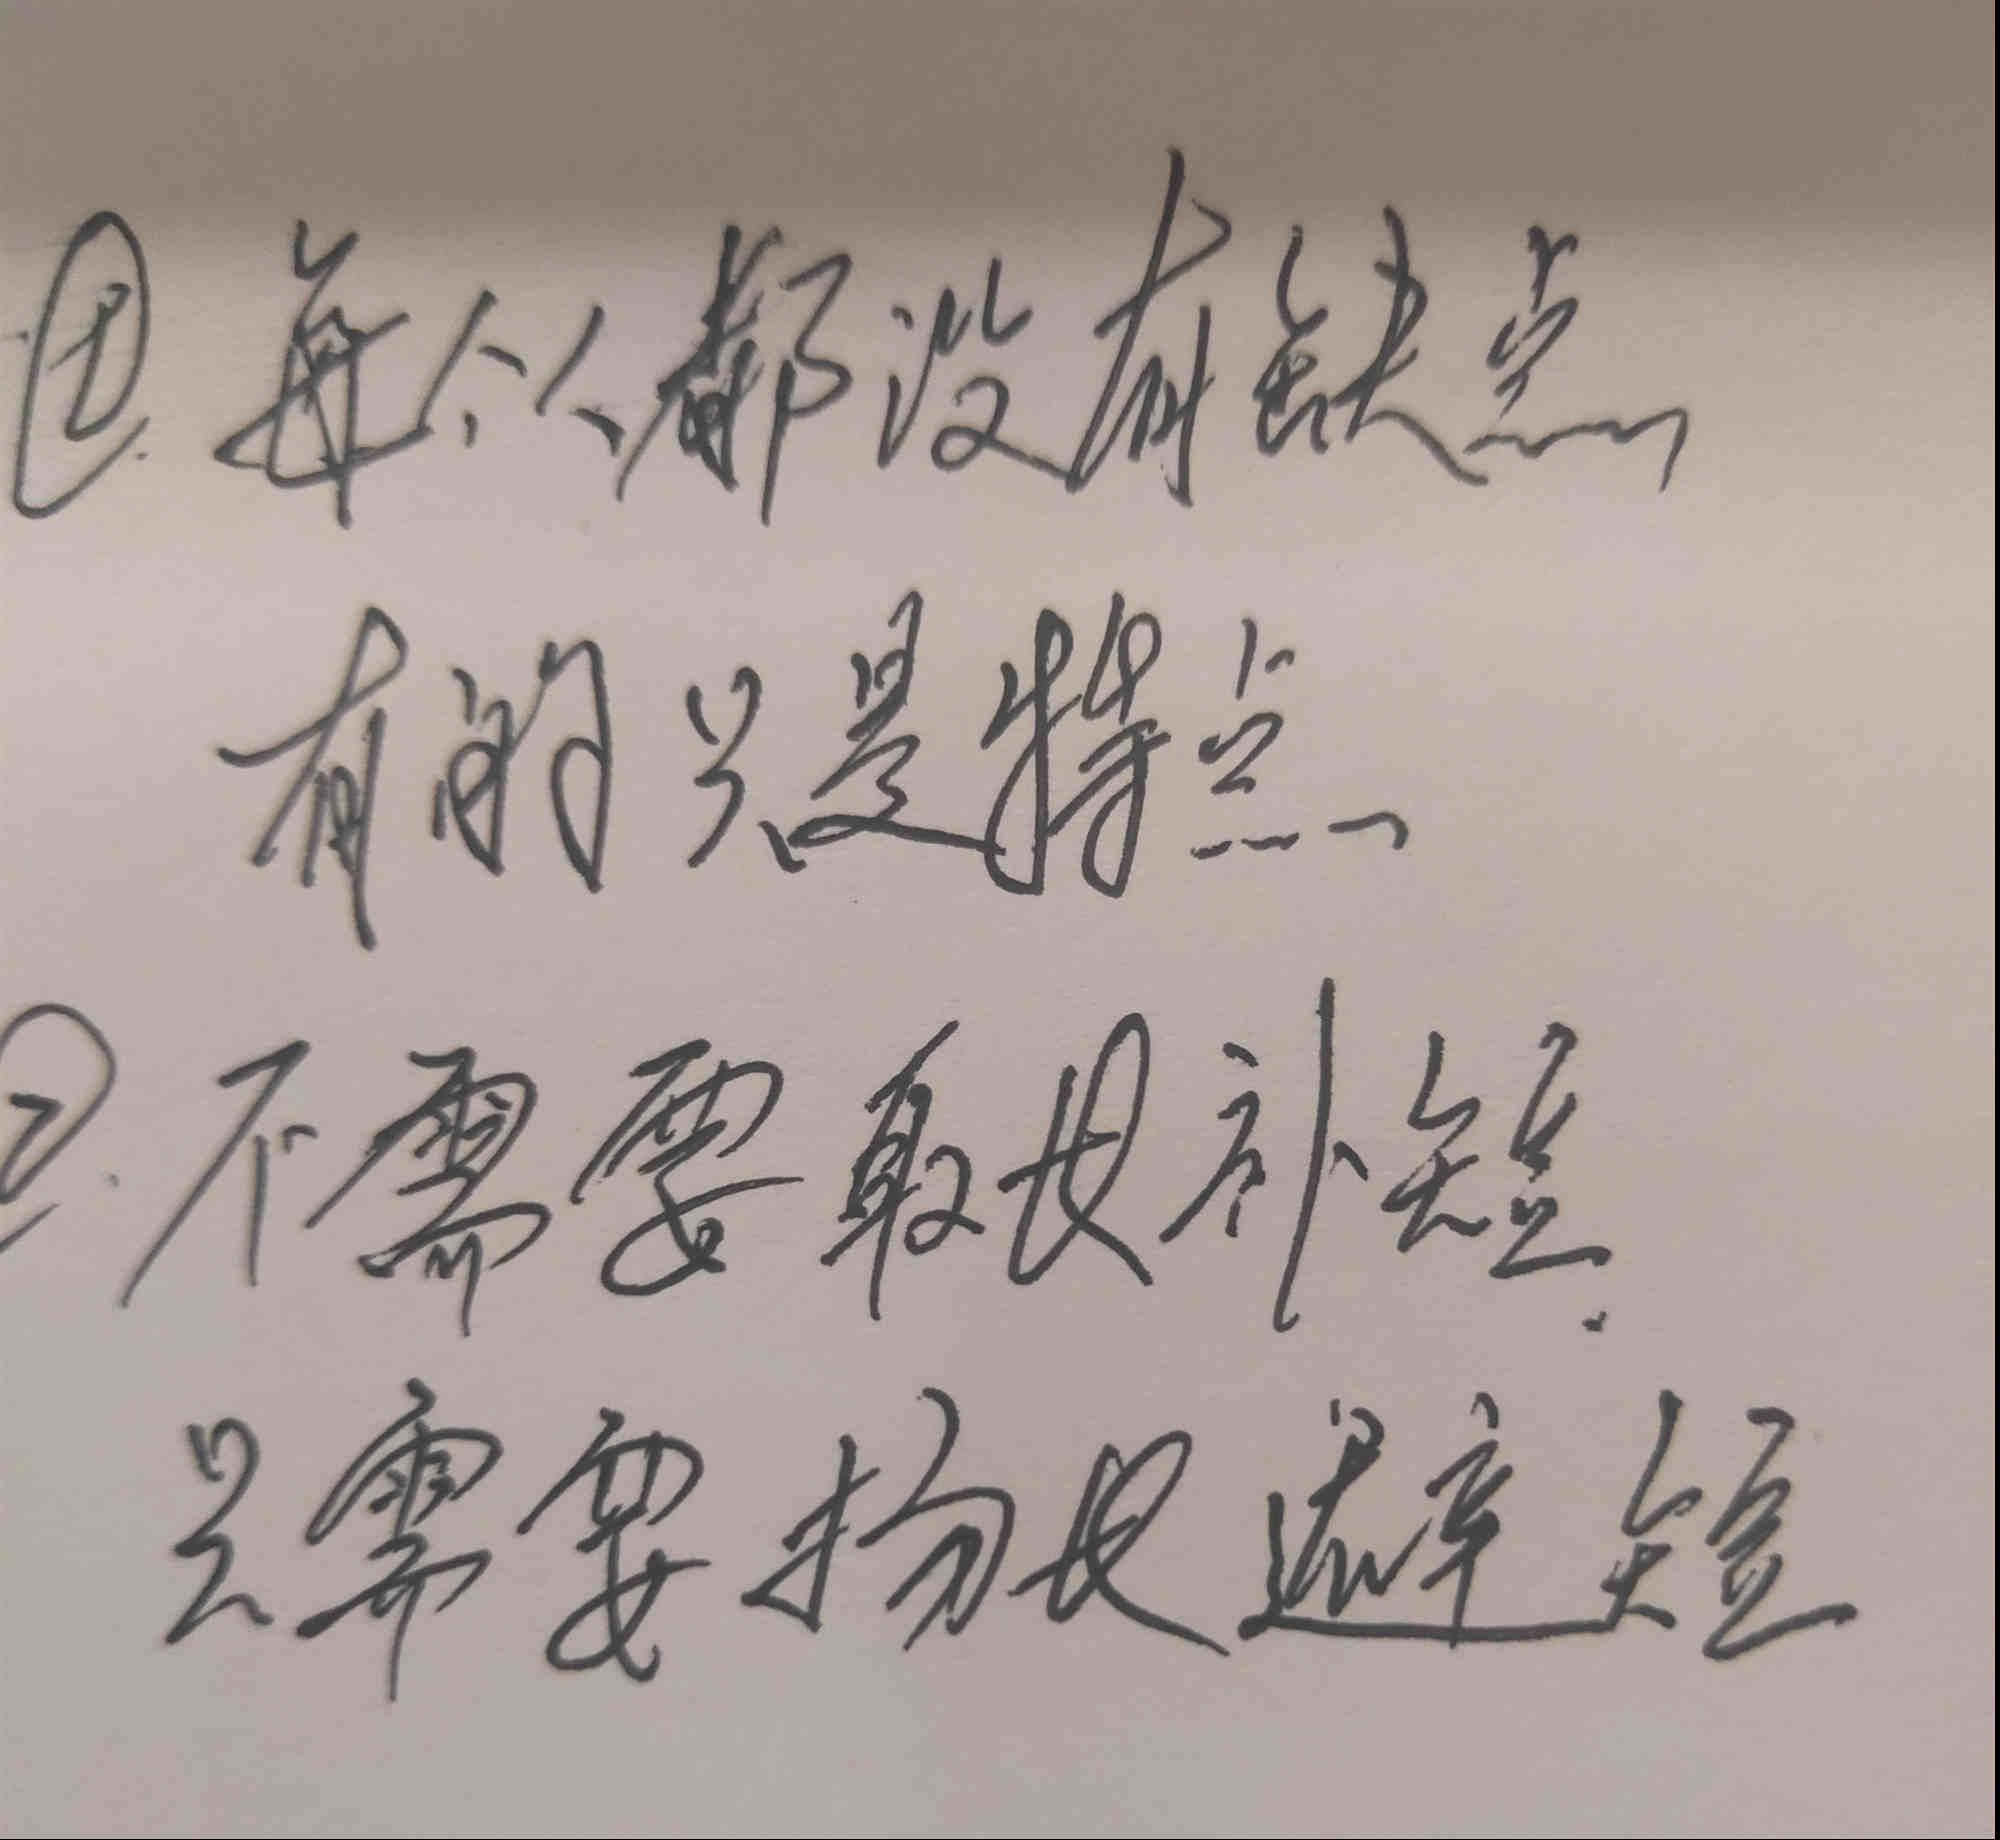 ①. 每个人都没有缺点
有的只是特点
②. 不需要取长补短.
只需要扬长避短